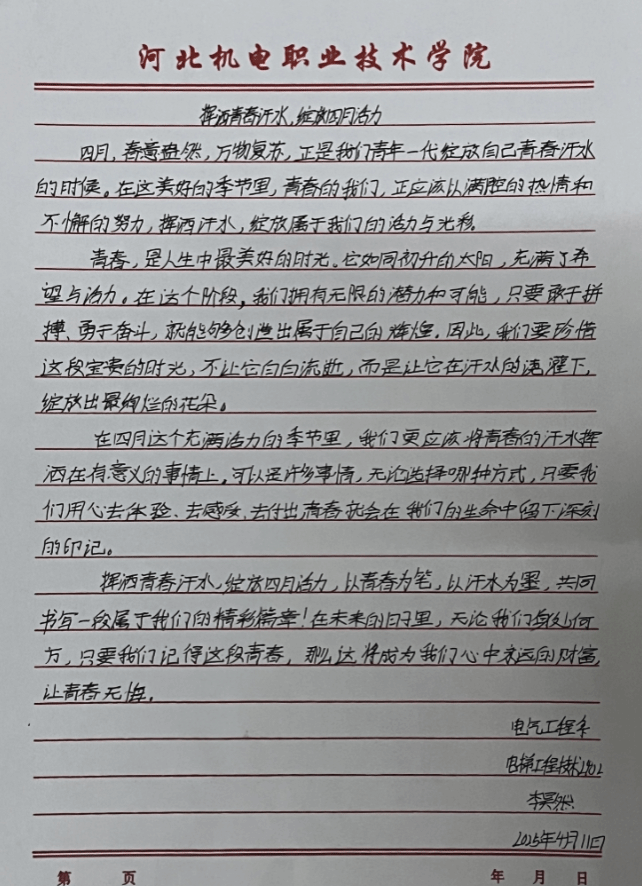 河北机电职业技术学院
挥洒青春汗水,绽放四月活力
四月,春意盎然,万物复苏,正是我们青年一代绽放自己青春汗水
的时候。在这美好的季节里,青春的我们,正应该以满腔的热情和
不懈的努力,挥洒汗水,绽放属于我们的活力与光彩。
青春,是人生中最美好的时光。它如同初升的太阳,充满了希
望与活力。在这个阶段,我们拥有无限的潜力和可能,只要敢于拼
搏、勇于奋斗,就能够创造出属于自己的辉煌。因此,我们要珍惜
这段宝贵的时光,不让它白白流逝,而是让它在汗水的浇灌下,
绽放出最绚烂的花朵。
在四月这个充满活力的季节里,我们更应该将青春的汗水挥
洒在有意义的事情上,可以是许多事情,无论选择哪种方式,只要我
们用心去体验、去感受、去付出青春就会在我们的生命中留下深刻
的印记。
挥洒青春汗水,绽放四月活力,以青春为笔,以汗水为墨,共同
书写一段属于我们的精彩篇章!在未来的日子里,无论我们身处何
方,只要我们记得这段青春,那么这将成为我们心中永远的财富,
让青春无悔。
电气工程系
电梯工程技术2402
李昊然
2025年4月11日
第 页 年 月 日